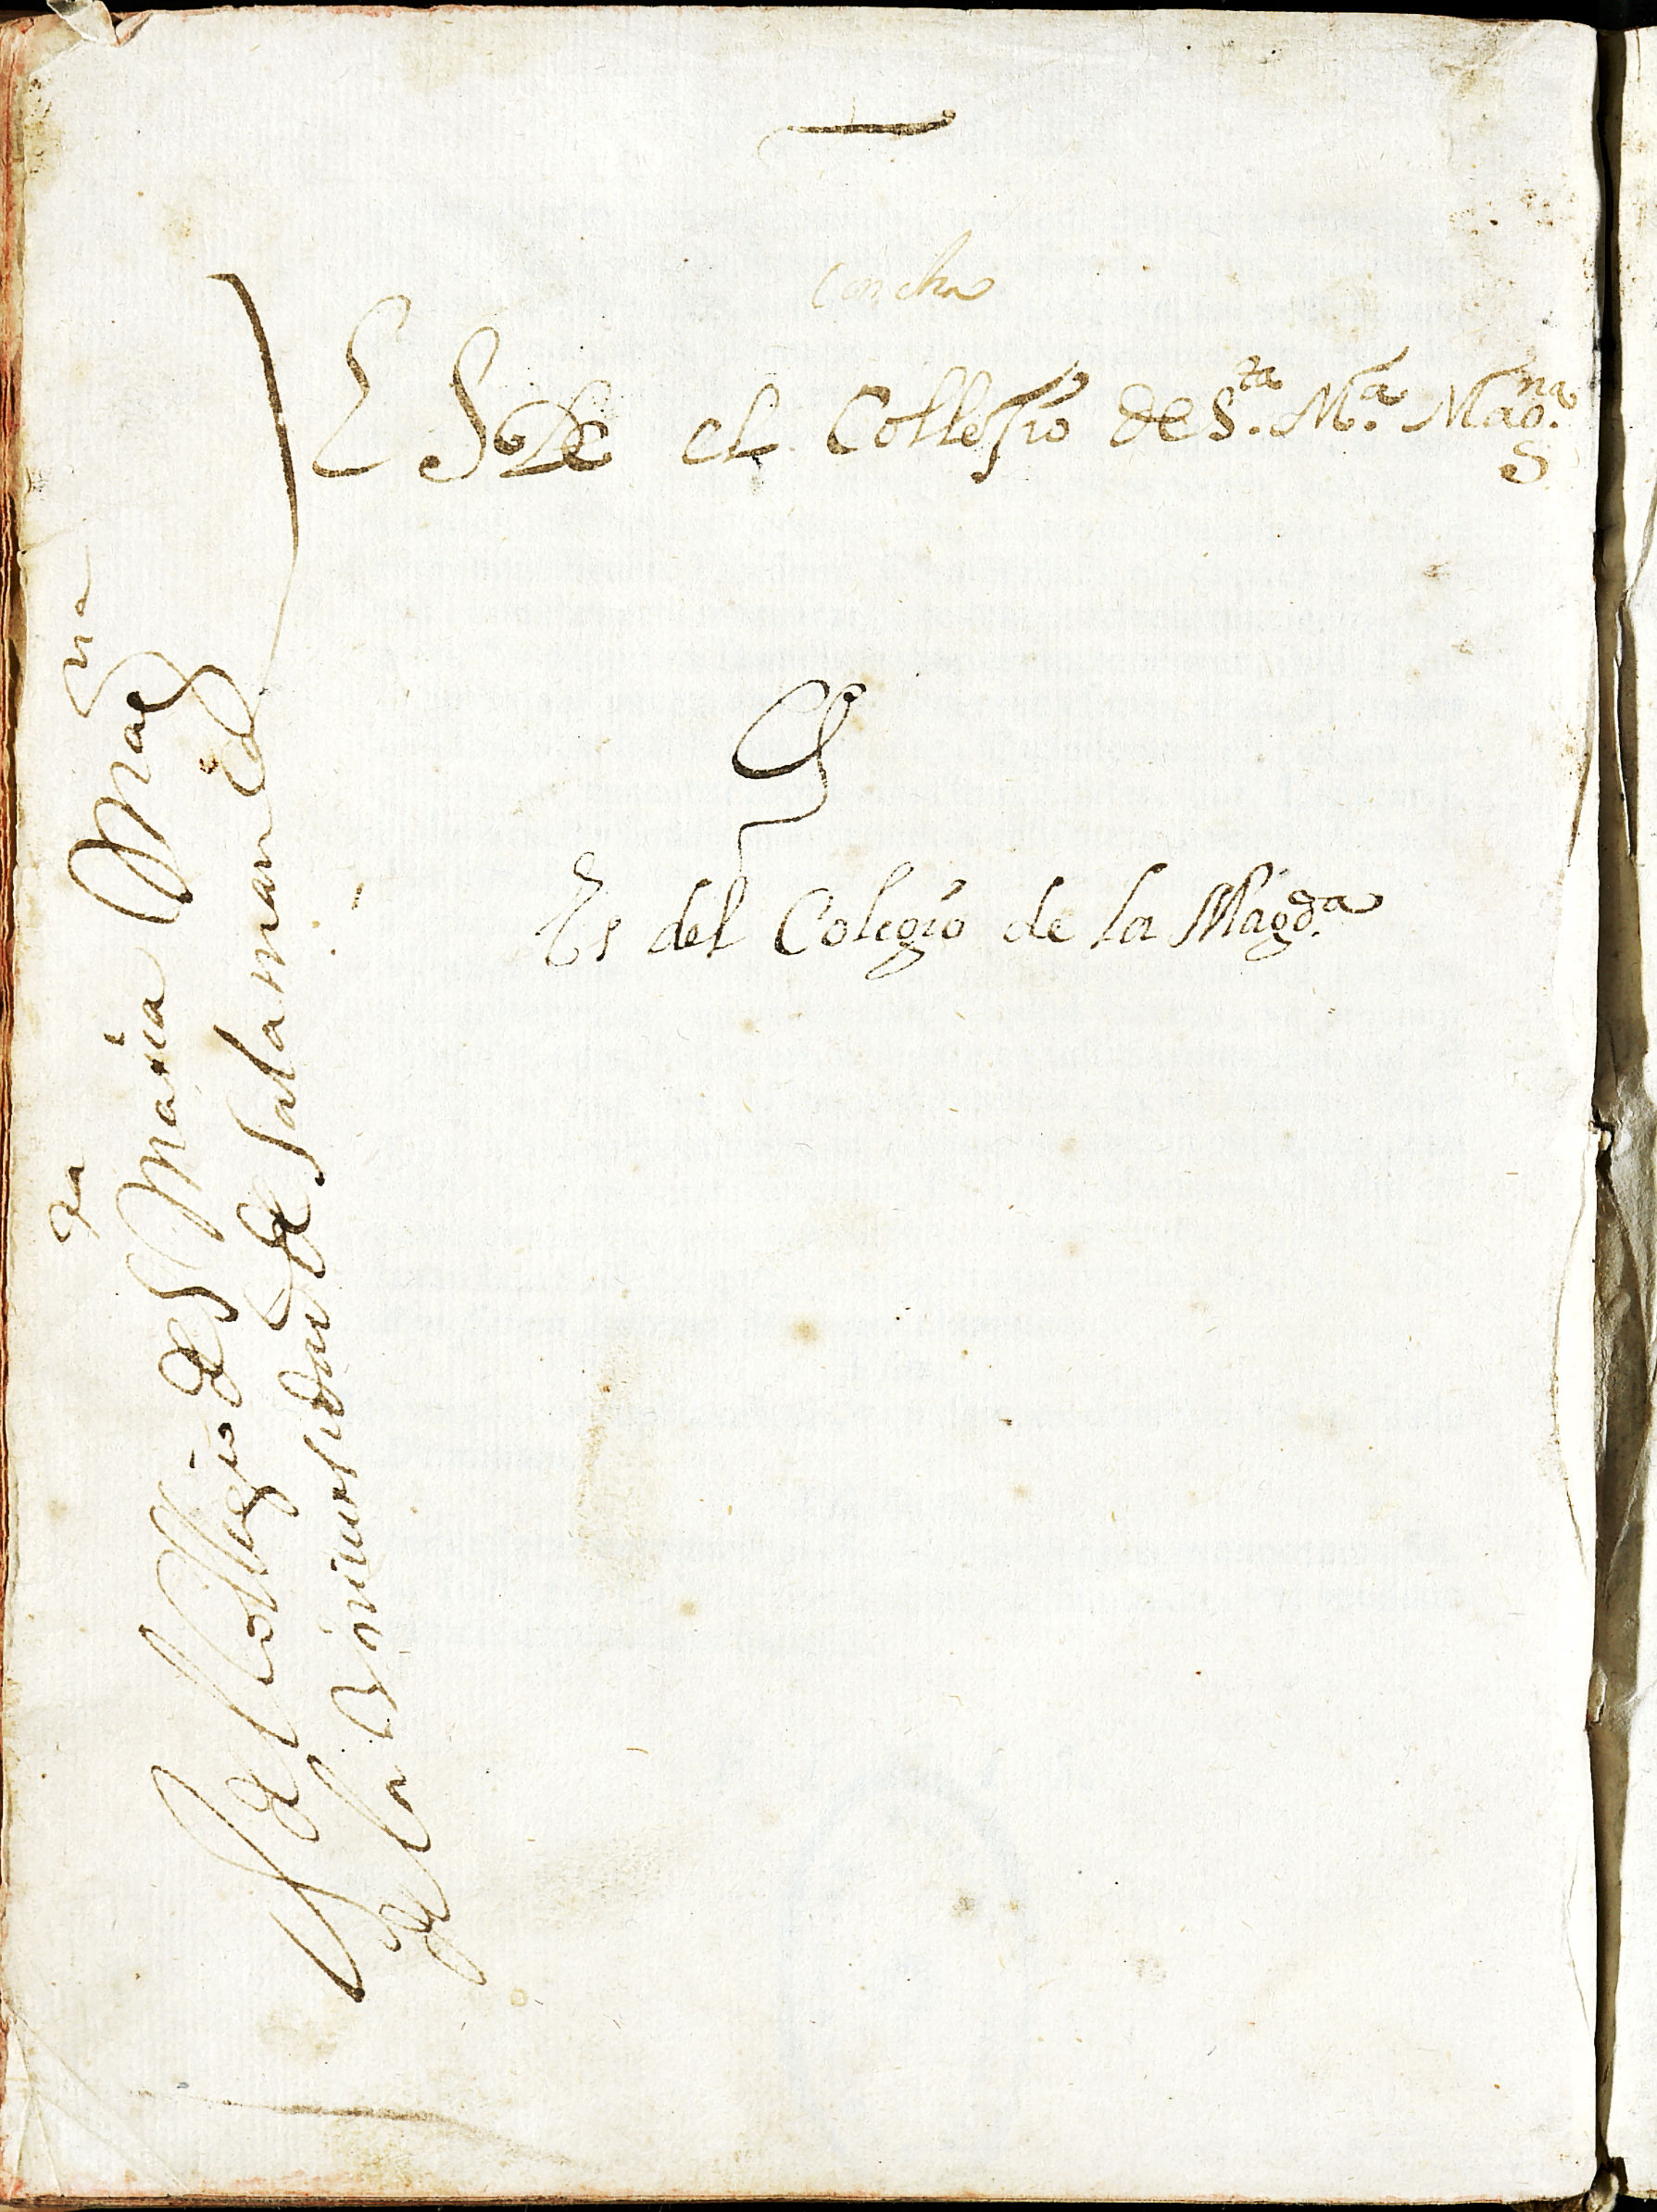 Concha
ES de el Collejio de S.ta M.a Mag.na
Es del Colegio de la Magd.a
del Collegio de S ta Maria Mag na
de la Vniuersidad de Salamanca